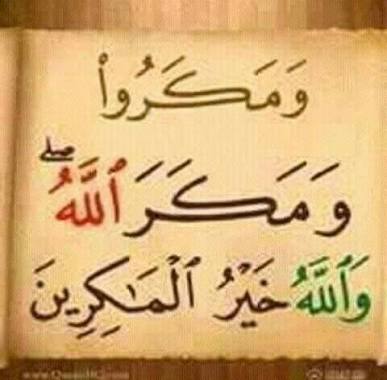 وَمَكَرُوا۟
وَمَكَرَ ٱللَّهُۖ
وَٱللَّهُ خَيْرُ ٱلْمَـٰكِرِينَ